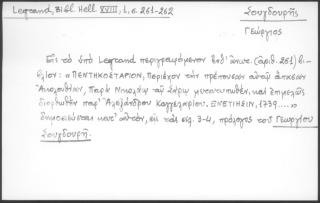 Legrand, Bibl. Hell. XVIII, 1, σ. 261-262
Σουγδουρῆς
Γεώργιος
Εἰς τὸ ὑπὸ Legrand περιγραφόμενον ἐνθ' ἀνωτ. (ἀριθ. 251) βι-
βλίον: « ΠΕΝΤΗΚΟΣΤΑΡΙΟΝ, Περιέχον τὴν πρέπουσαν αὐτῷ ἅπασαν
Ἀκολουθίαν, Παρὰ Νικολάῳ τῷ Σάρῳ μετατυπωθέν, καὶ ἐπιμελῶς
διορθωθὲν παρ' Ἀλεξάνδρου Καγκελλαρίου. ΕΝΕΤΙΗΣΙΝ, 1739.....»
δημοσιεύεται κατ' αὐτόν, εἰς τὰς σελ. 3-4, πρόλογος τοῦ Γεωργίου
Σουγδουρῆ.